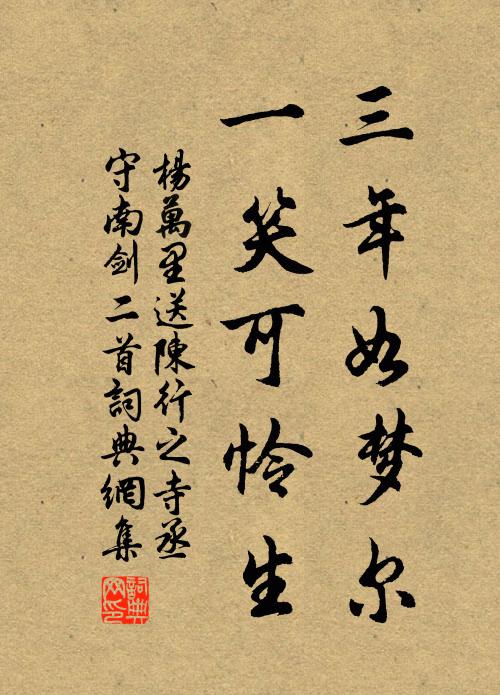 三年如梦尔
一笑可怜生
楊萬里送陳行之寺丞
守南劍二首詞典網集
詞典
网印